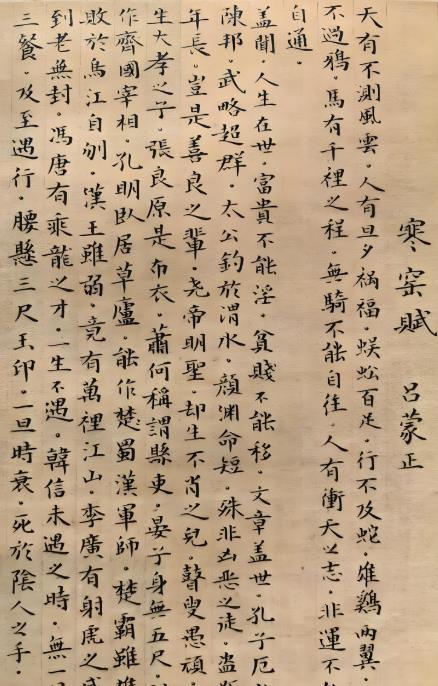 寒窑賦 呂蒙正
天有不測風雲。人有旦夕禍福。蜈蚣百足。行不及蛇。雄鷄兩翼。
不過鴉。馬有千裡之程。無騎不能自往。人有衝天之志。非運不
自通。
盖聞。人生在世。富貴不能淫。貧賤不能移。文章盖世。孔子厄
陳邦。武略超群。太公釣於渭水。顏渊命短。殊非凶恶之徒。盗
年長。豈是善良之輩。尧帝明聖。却生不肖之兒。瞽叟愚頑。
生大孝之子。張良原是布衣。蕭何稱謂縣吏。晏子身無五尺。
作齊國宰相。孔明卧居草廬。能作楚蜀漢軍師。楚霸雖
敗於烏江自刎。漢王雖弱。竟有萬裡江山。李廣有射虎之
到老無封。馮唐有乘龍之才。一生不遇。韓信未遇之時。無一
三餐。及至遇行。腰懸三尺玉印。一旦時衰。死於陰人之手。